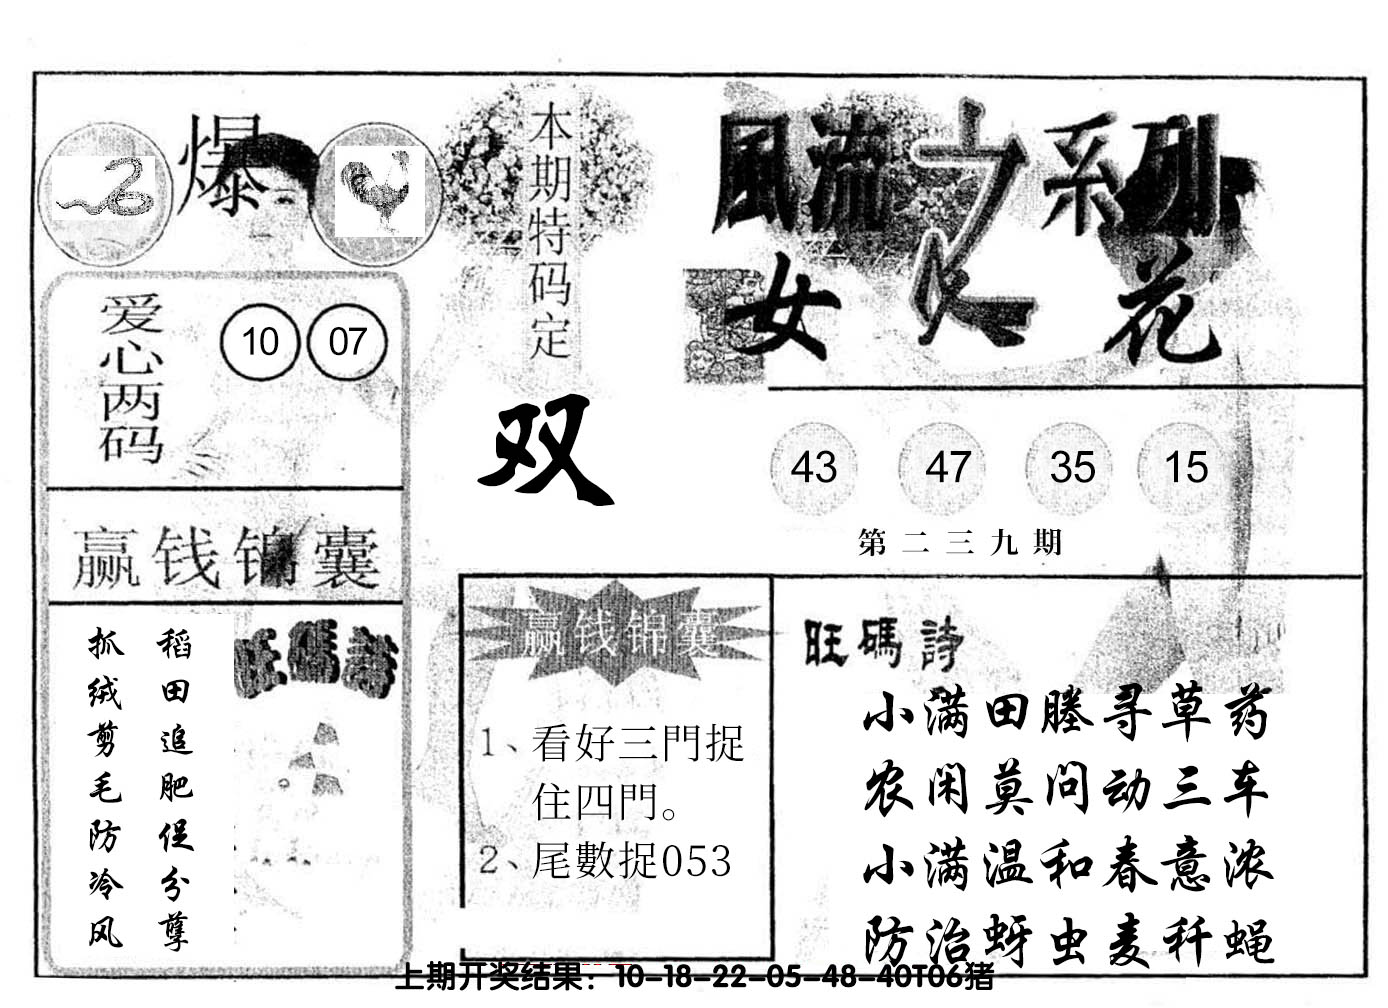 爆
本期特码定
双
風流之系列
女人花
爱心两码
10 07
43 47 35 15
第二三九期
赢钱锦囊
稻田追肥促分孽
抓绒剪毛防冷风
旺碼詩
赢钱锦囊
1、看好三門捉
住四門。
2、尾數捉053
旺碼詩
小满田塍寻草药
农闲莫问动三车
小满温和春意浓
防治蚜虫麦秆蝇
上期开奖结果：10-18-22-05-48-40T06猪